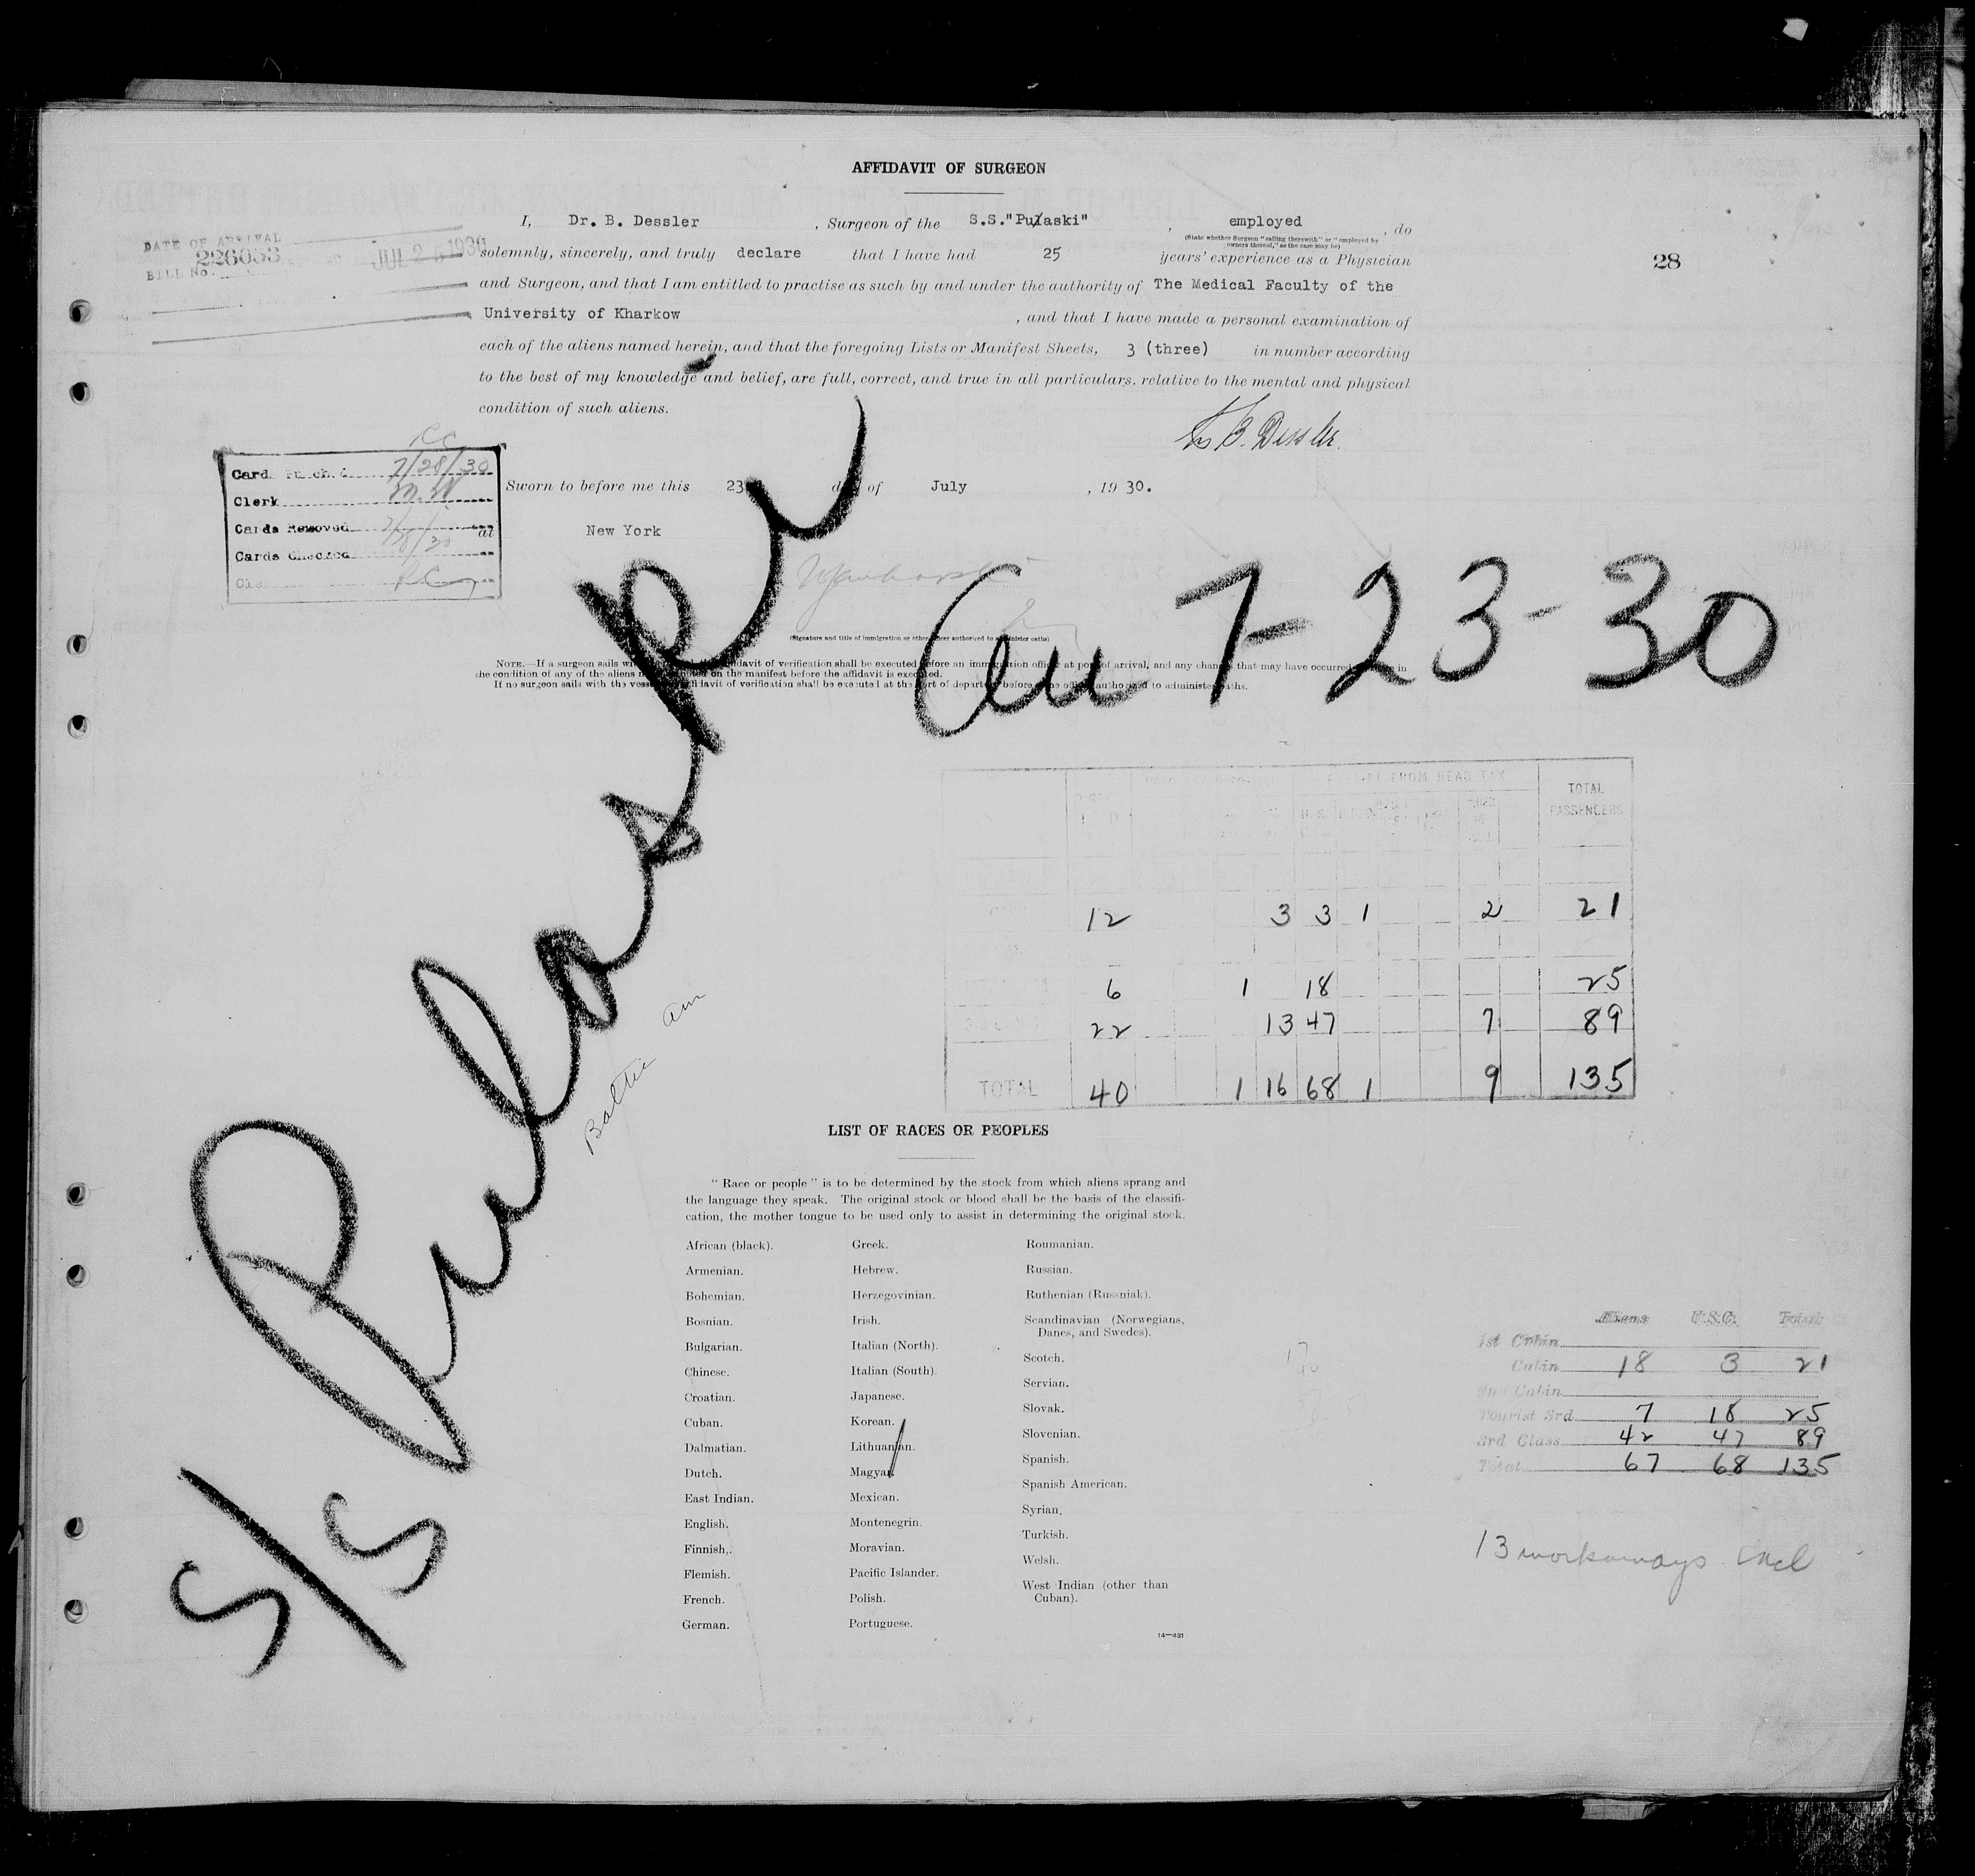 AFFIDAVIT OF SURGEON
I, Dr. B. Dessler, Surgeon of the S.S."Pulaski", employed, do
(State whether Surgeon "sailing therewith" or "employed by owners thereof," as the case may be)
solemnly, sincerely, and truly declare that I have had 25 years' experience as a Physician
and Surgeon, and that I am entitled to practise as such by and under the authority of The Medical Faculty of the
University of Kharkow, and that I have made a personal examination of
each of the aliens named herein, and that the foregoing Lists or Manifest Sheets, 3 (three) in number according
to the best of my knowledge and belief, are full, correct, and true in all particulars, relative to the mental and physical
condition of such aliens.
DATE OF ARRIVAL
226053 JUL 25 1930
BILL No.
28
B. Dessler
Card 7/28/30
Clerk
Cards Removed
Cards Checked
Sworn to before me this 23 day of July, 1930.
at New York
(Signature and title of immigration or other officer authorized to administer oaths)
7-23-30
NOTE.—If a surgeon sails affidavit of verification shall be executed before an immigration officer at port of arrival, and any changes that may have occurred in
the condition of any of the aliens noted on the manifest before the affidavit is executed.
If no surgeon sails with the vessel affidavit of verification shall be executed at the port of departure before officer authorized to administer oaths.
S/S Pulaski
Baltic Am
FROM HEAD TAX TOTAL PASSENGERS
12 3 3 1 2 21
6 1 18 25
22 13 47 7 89
TOTAL 40 1 16 68 1 9 135
LIST OF RACES OR PEOPLES
"Race or people" is to be determined by the stock from which aliens sprang and
the language they speak. The original stock or blood shall be the basis of the classifi-
cation, the mother tongue to be used only to assist in determining the original stock.
African (black).
Armenian.
Bohemian.
Bosnian.
Bulgarian.
Chinese.
Croatian.
Cuban.
Dalmatian.
Dutch.
East Indian.
English.
Finnish.
Flemish.
French.
German.
Greek.
Hebrew.
Herzegovinian.
Irish.
Italian (North).
Italian (South).
Japanese.
Korean.
Lithuanian.
Magyar.
Mexican.
Montenegrin.
Moravian.
Pacific Islander.
Polish.
Portuguese.
Roumanian.
Russian.
Ruthenian (Russniak).
Scandinavian (Norwegians,
Danes, and Swedes).
Scotch.
Servian.
Slovak.
Slovenian.
Spanish.
Spanish American.
Syrian.
Turkish.
Welsh.
West Indian (other than
Cuban).
14—431
Aliens U.S.C. Total
1st Cabin
Cabin 18 3 21
2nd Cabin
Tourist 3rd 7 18 25
3rd Class 42 47 89
Total 67 68 135
13 workaways incl